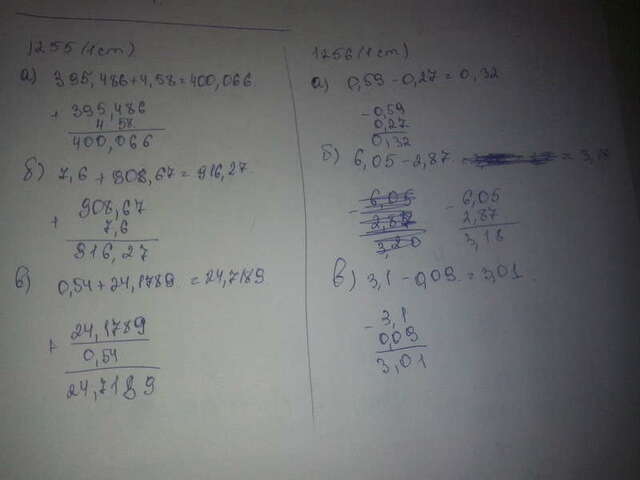 1255 (1 cm)
а) 395,486 + 4,58 = 400,066
+ 395,486
4 58
400,066
б) 7,6 + 908,67 = 916,27.
+ 908,67
7,6
916,27
в) 0,54 + 24,1789 = 24,7189.
+ 24,1789
0,54
24,7189
1256 (1 cm)
а) 0,59 - 0,27 = 0,32
- 0,59
0,27
0,32
б) 6,05 - 2,87 = 3,18
- 6,05
2,87
3,20
- 6,05
2,87
3,18
в) 3,1 - 0,09 = 3,01.
- 3,1
0,09
3,01